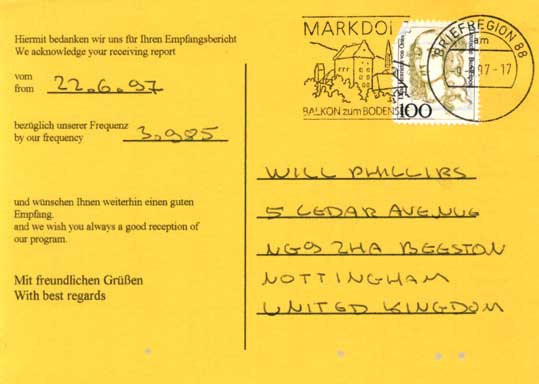 Hiermit bedanken wir uns für Ihren Empfangsbericht
We acknowledge your receiving report
vom
from 22.6.97
bezüglich unserer Frequenz
by our frequency 3.985
und wünschen Ihnen weiterhin einen guten
Empfang.
and we wish you always a good reception of
our program.
Mit freundlichen Grüßen
With best regards
MARKDO
BALKON zum BODENS
BRIEFREGION 88
am
97-17
100
WILL PHILLIPS
5 CEDAR AVENUE
NG9 2HA BEESTON
NOTTINGHAM
UNITED KINGDOM